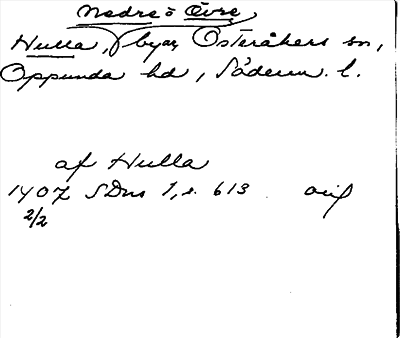 Nedre o Övre
Hulla, byar, Österåkers sn,
Oppunda hd, Söderm. l.
af Hulla
1407 SDns 1, s. 613 orig
2/2